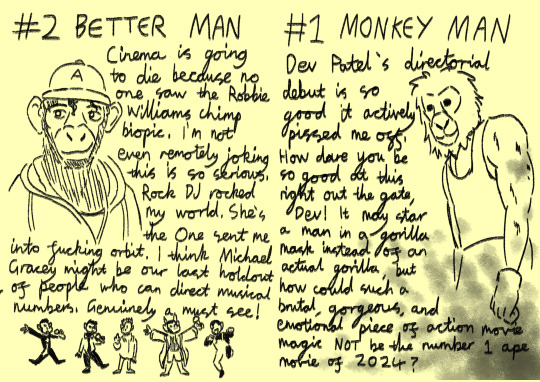 #2 BETTER MAN
Cinema is going
to die because no
one saw the Robbie
Williams chimp
biopic. I'm not
even remotely joking
this is so serious.
Rock DJ rocked
my world. She's
the One sent me
into fucking orbit. I think Michael
Gracey might be our last holdout
of people who can direct musical
numbers. Genuinely a must see!
A
#1 MONKEY MAN
Dev Patel's directorial
debut is so
good it actively
pissed me off.
How dare you be
so good at this
right out the gate,
Dev! It may star
a man in a gorilla
mask instead of an
actual gorilla, but
how could such a
brutal, gorgeous, and
emotional piece of action movie
magic NOT be the number 1 ape
movie of 2024?